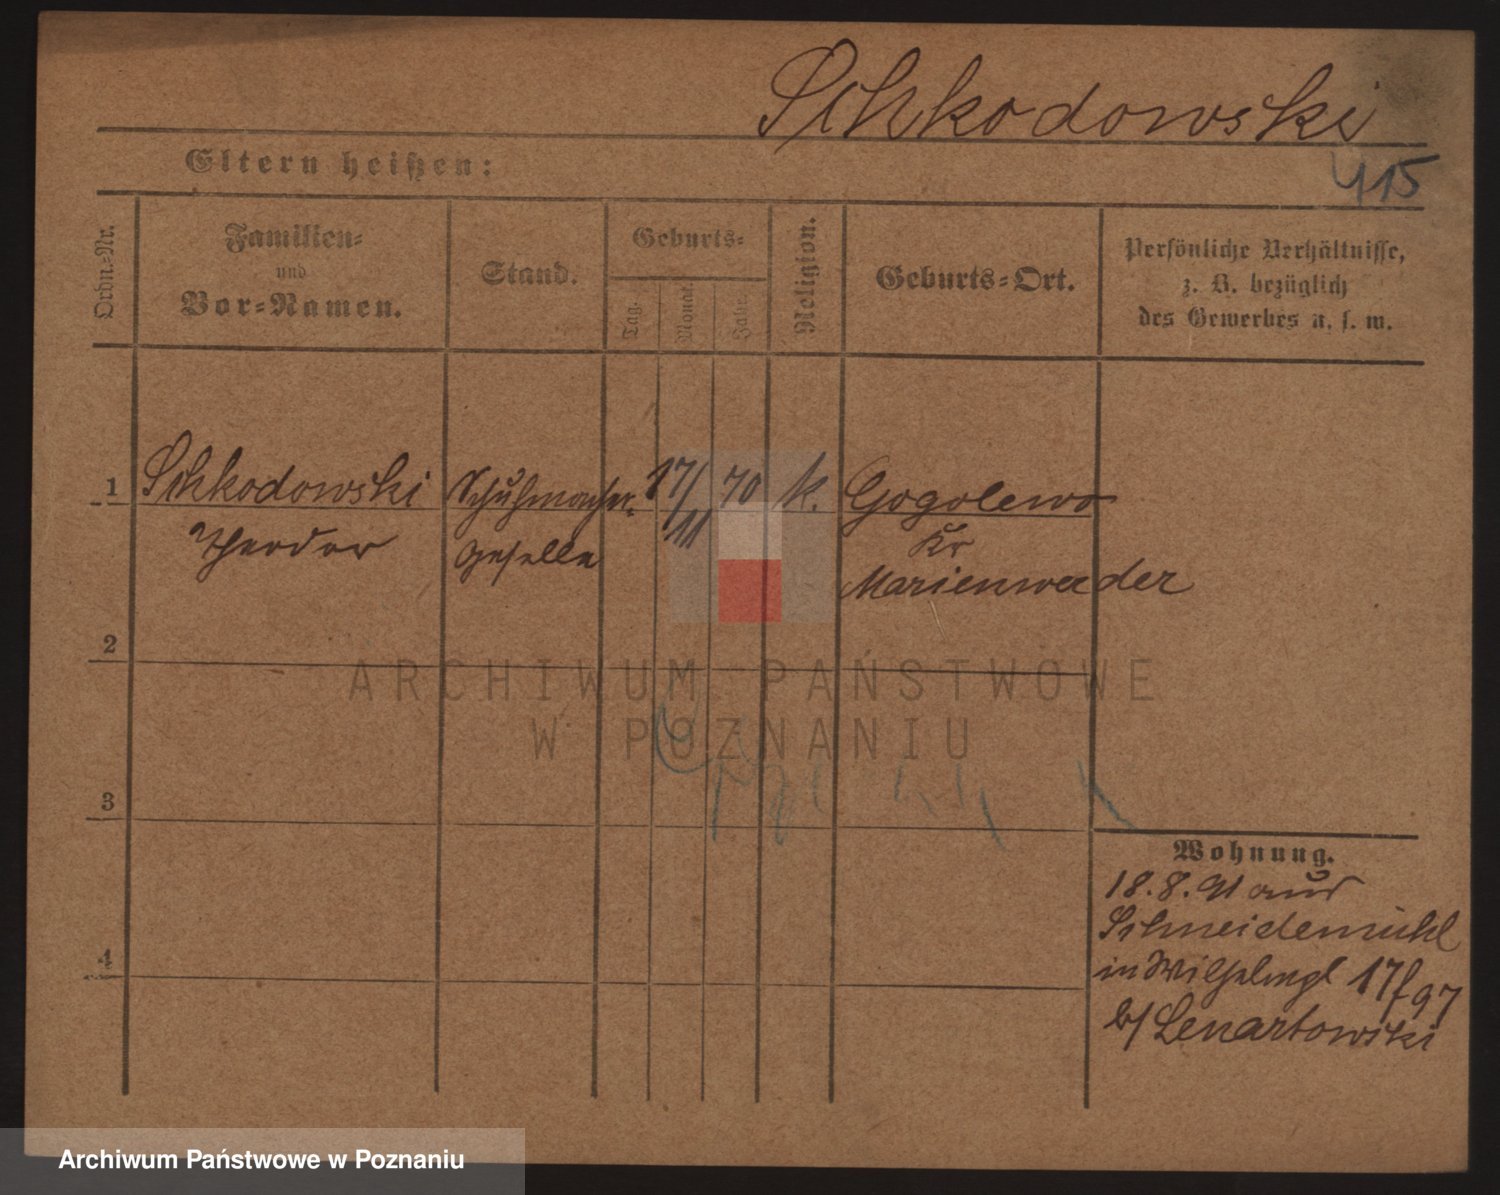 Schkodowski
Eltern heißen:
415
Ordn.-Nr.
Familien-
und
Vor-Namen.
Stand.
Geburts-
Tag.
Monat.
Jahr.
Religion.
Geburts-Ort.
Persönliche Verhältnisse,
z. B. bezüglich
des Gewerbes u. s. w.
1
Schkodowski
Theodor
Schuhmacher-
geselle
17/
11
70
k.
Gogolewo
Kr
Marienwerder
2
ARCHIWUM PAŃSTWOWE
W POZNANIU
3
Wohnung.
18.8.91 aus
Schneidemühl
in Wilhelmpl 17
b/ Lenartowski
4
Archiwum Państwowe w Poznaniu